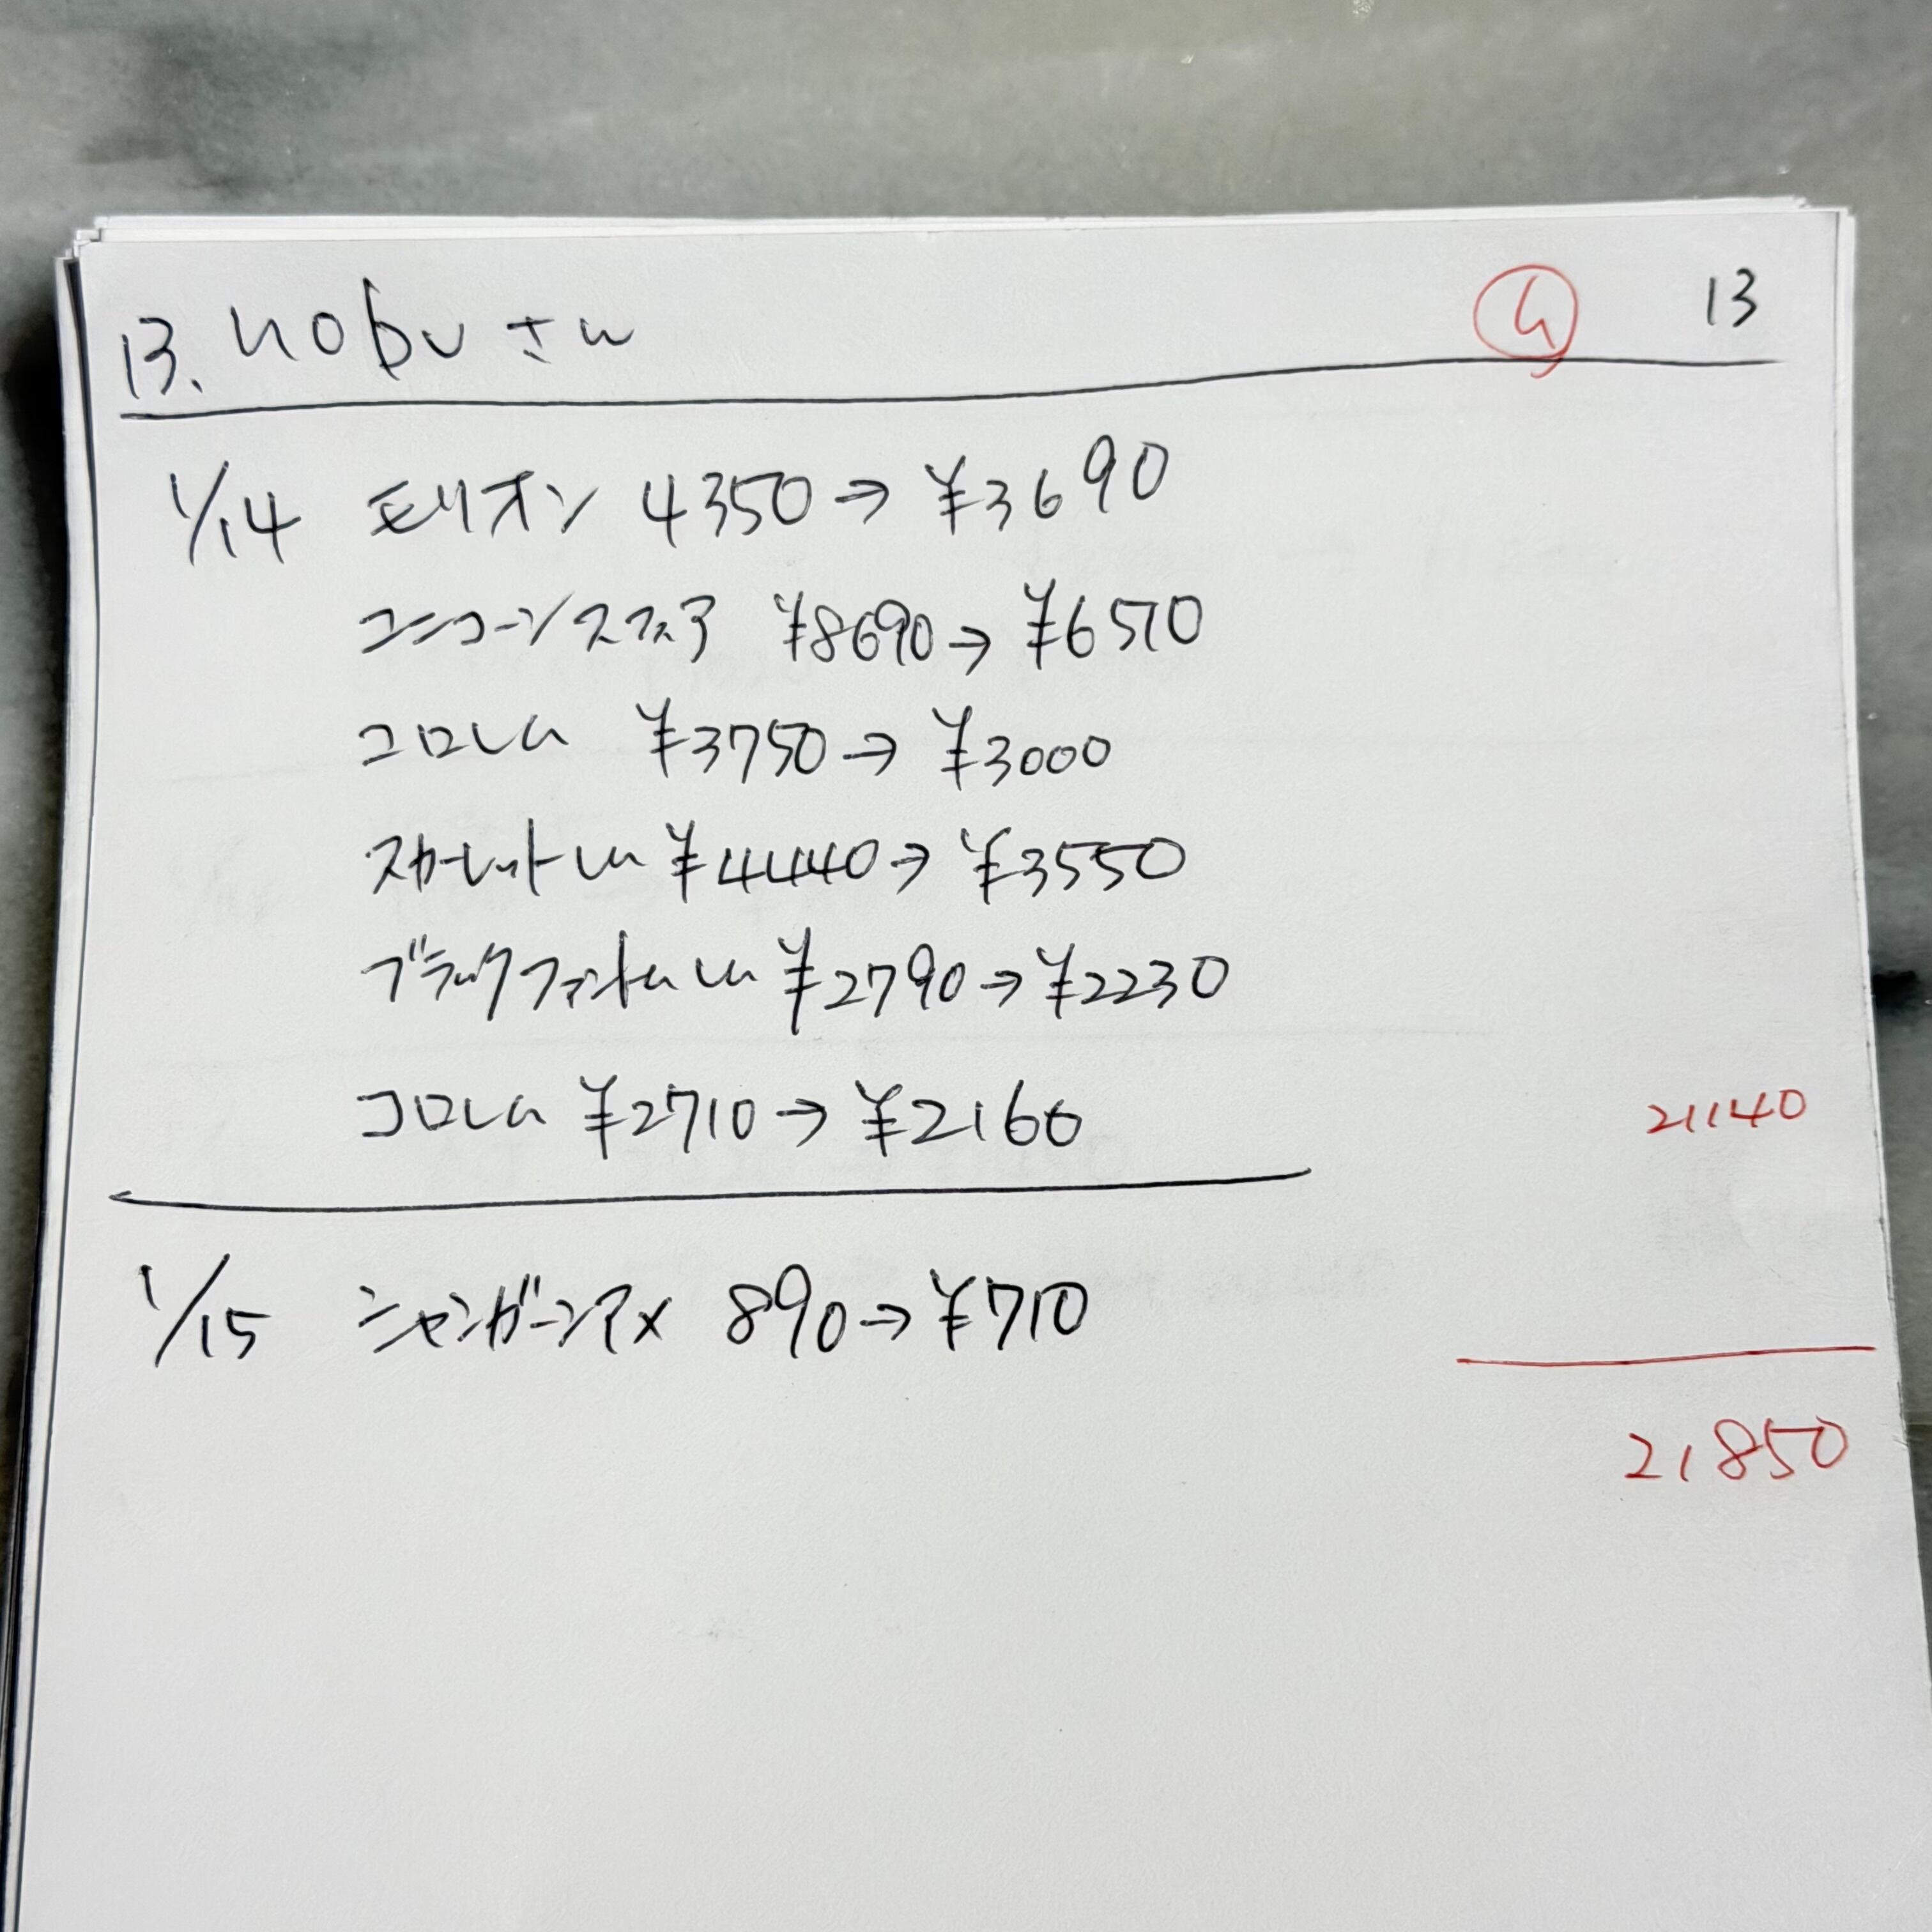 13. nobuさん 13
1/14 モリオン 4350→¥3690
ユニコーンスフィア ¥8690→¥6510
コロレム ¥3750→¥3000
スカーレットレム ¥4440→¥3550
ブラックファントムレム ¥2790→¥2230
コロレム ¥2710→¥2160 21140
1/15 シャンガーンアメ 890→¥710
21850